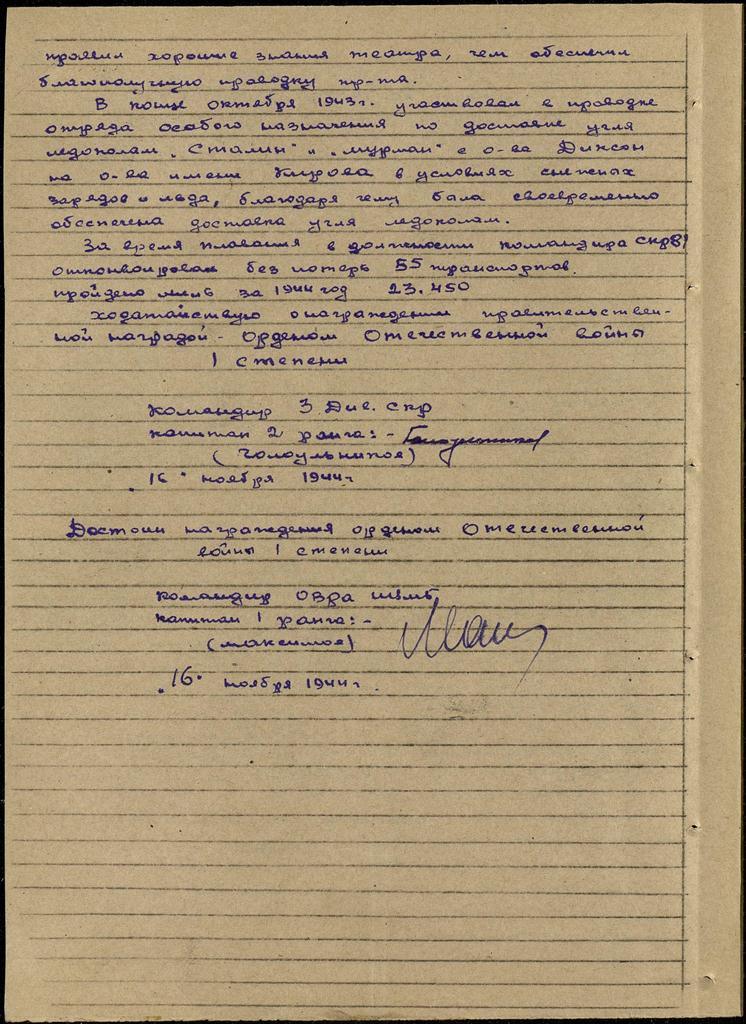 проявил хорошие знания театра, чем обеспечил
благополучную проводку тр-та.
В конце октября 1943 г. участвовал в проводке
отряда особого назначения по доставке угля
ледоколам „Сталин" и „Мурман" с о-ва Диксон
на о-ва имени Кирова в условиях снежных
зарядов и льда, благодаря чему была своевременно
обеспечена доставка угля ледоколам.
За время плавания в должности командира СКР
отконвоировал без потерь 55 транспортов.
пройдено миль за 1944 год 23.450
ходатайствую о награждении правительствен-
ной наградой - Орденом Отечественной войны
1 степени
Командир 3 Див. СКР
капитан 2 ранга: -
(Голоульников)
„16" ноября 1944 г
Достоин награждения орденом Отечественной
войны 1 степени
Командир ОВРа
капитан 1 ранга: -
(Максимов)
„16" ноября 1944 г.